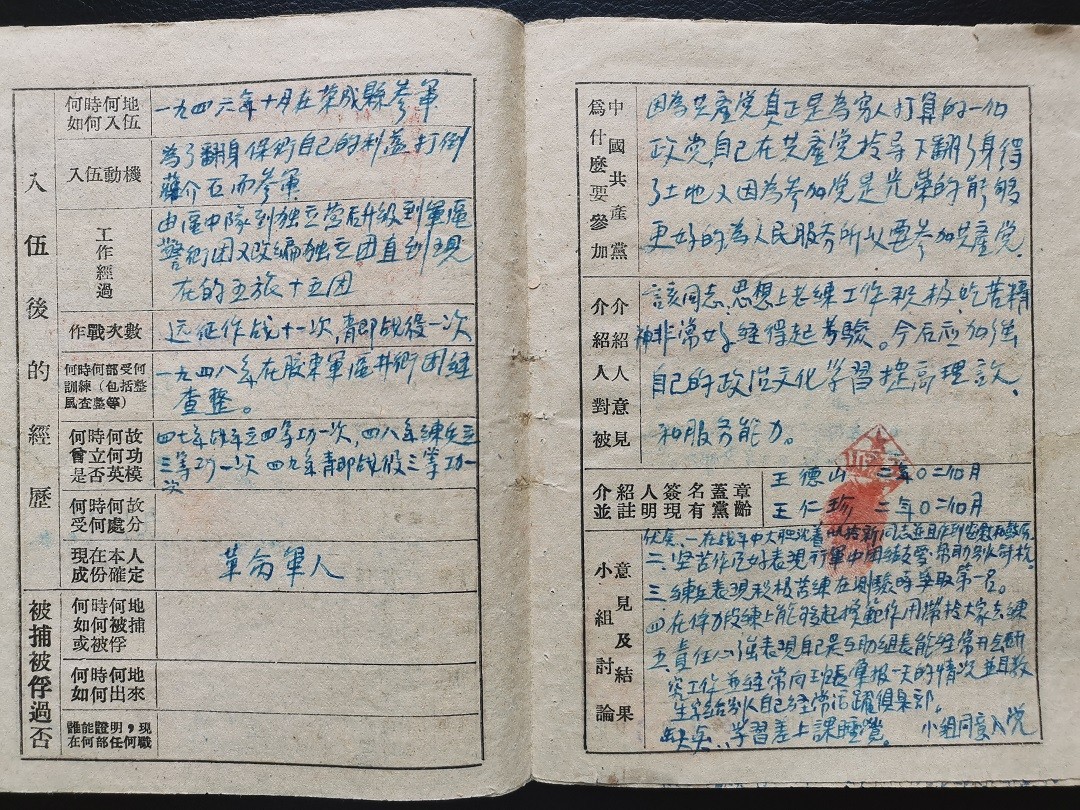 入伍後的經歷
何時何地
如何入伍
一九四六年十月在荣成縣参軍
入伍動機
为了翻身保衛自己的利益打倒
蔣介石而参軍
工作經過
由區中隊到独立营后升级到軍區
警衛团又改編独立团直到現
在的五旅十五团
作戰次數
远征作战十一次,青即战役一次
何時何部受何
訓練(包括整
風査整等)
一九四八年在胶東軍區井衛团経
查整。
何時何故
曾立何功
是否英模
四七年战斗立四等功一次,四八年練兵立
三等功一次 四九年青即战役三等功一
次
何時何故
受何處分
現在本人
成份確定
革命軍人
被捕被俘過否
何時何地
如何被捕
或被俘
何時何地
如何出來
誰能證明,現
在何部任何職
爲什麼要參加
中國共產黨
因為共產党真正是為窮人打算的一個
政党,自己在共產党領导下翻了身得
了土地又因為参加党是光榮的能够
更好的為人民服务所以要参加共產党.
介紹人對被
介紹人意見
該同志,思想上老練工作积极,吃苦精
神非常好,経得起考驗。今后应加强
自己的政治文化学習提高理論、
和服务能力。
介紹人簽名蓋章
並註明現有黨齡
王德山 二年〇二個月
王仁珍 二年〇二個月
小組討論
意見及結果
優点、一在战斗中大胆沈着
二、坚苦作风好表現行軍中
三、練兵表現积极苦練在測驗時爭取第一名。
四、在体力段練上能够起模範作用帶領大家去練
五、責任心强表現自己是互助組長能経常開会研
究工作並経常向班長彙报一天的情况並且教
自己経常活躍俱樂部。
缺点、学習差上課睡覺。 小組同意入党